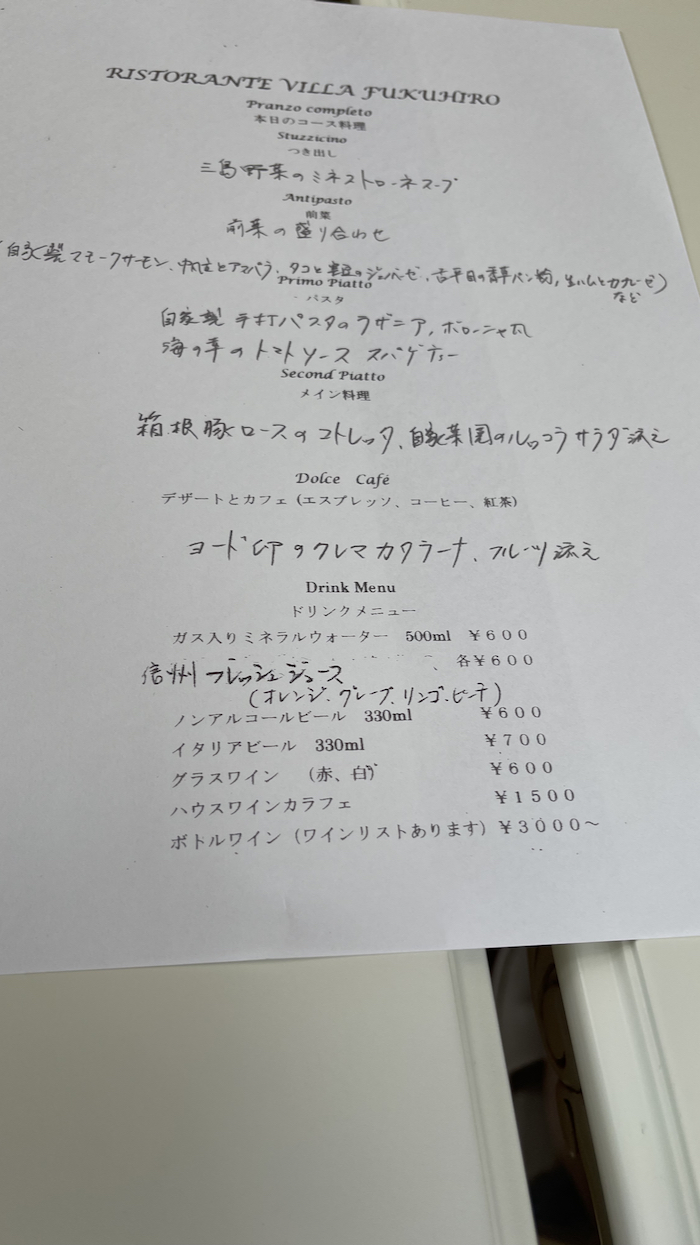 RISTORANTE VILLA FUKUHIRO
Pranzo completo
本日のコース料理
Stuzzicino
つき出し
三島野菜のミネストローネスープ
Antipasto
前菜
前菜の盛り合わせ
(自家製スモークサーモン、とアマバラ、タコとのジェノベーゼ、舌平目の香草パン粉、生ハムとカプレーゼ)
など
Primo Piatto
パスタ
自家製 手打パスタのラザニア、ボローニャ風
海の幸のトマトソース スパゲティー
Second Piatto
メイン料理
箱根豚ロースのコトレッタ、自家菜園のルッコラサラダ添え
Dolce Café
デザートとカフェ (エスプレッソ、コーヒー、紅茶)
ヨード卵のクレマカタラーナ、フルーツ添え
Drink Menu
ドリンクメニュー
ガス入りミネラルウォーター 500ml ￥６００
信州フレッシュジュース 各￥６００
(オレンジ、グレープ、リンゴ、ピーチ)
ノンアルコールビール 330ml ￥６００
イタリアビール 330ml ￥７００
グラスワイン (赤、白) ￥６００
ハウスワインカラフェ ￥１５００
ボトルワイン（ワインリストあります）￥３０００～